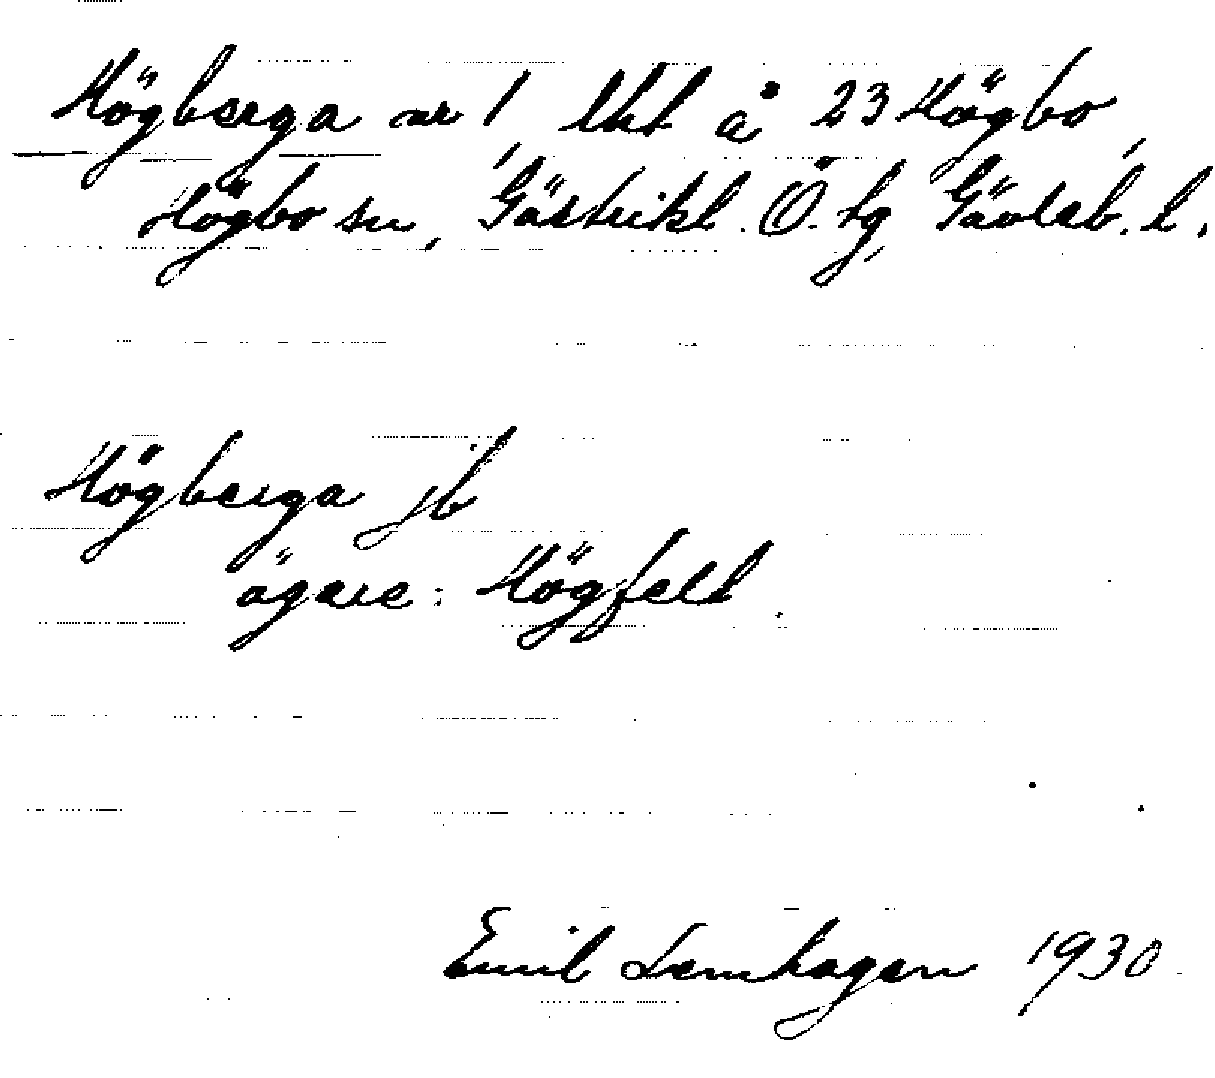 Högberga nr 1, lht å 23 Högbo,
Högbo sn, Gästrikl. Ö. hg, Gävleb. l.
Högberga jb
ägare: Högfelt.
Emil Lemhagen 1930